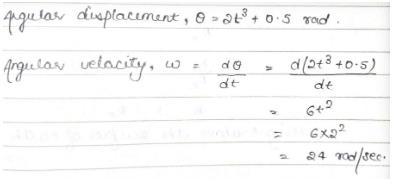 Angular displacement, θ = 2t³ + 0.5 rad.
Angular velocity, ω = dθ/dt = d(2t³+0.5)/dt
= 6t²
= 6×2²
= 24 rad/sec.